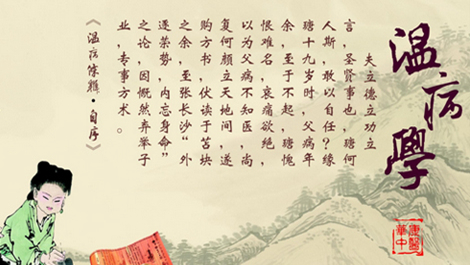 温病學
康醫
華中
夫立德立功立
言，圣贤事也，瑭何
人斯，敢以自任？缘
瑭十九岁时，父病年
余，至于不起，瑭愧
恨难名，哀痛欲绝，
以为父病不知医，尚
复何颜立天地间，遂
购方书，伏读于苫块
之余，至张长沙“外
逐荣势，内忘身命”
之论，因慨然弃举子
业，专事方术。
《温病条辨·自序》